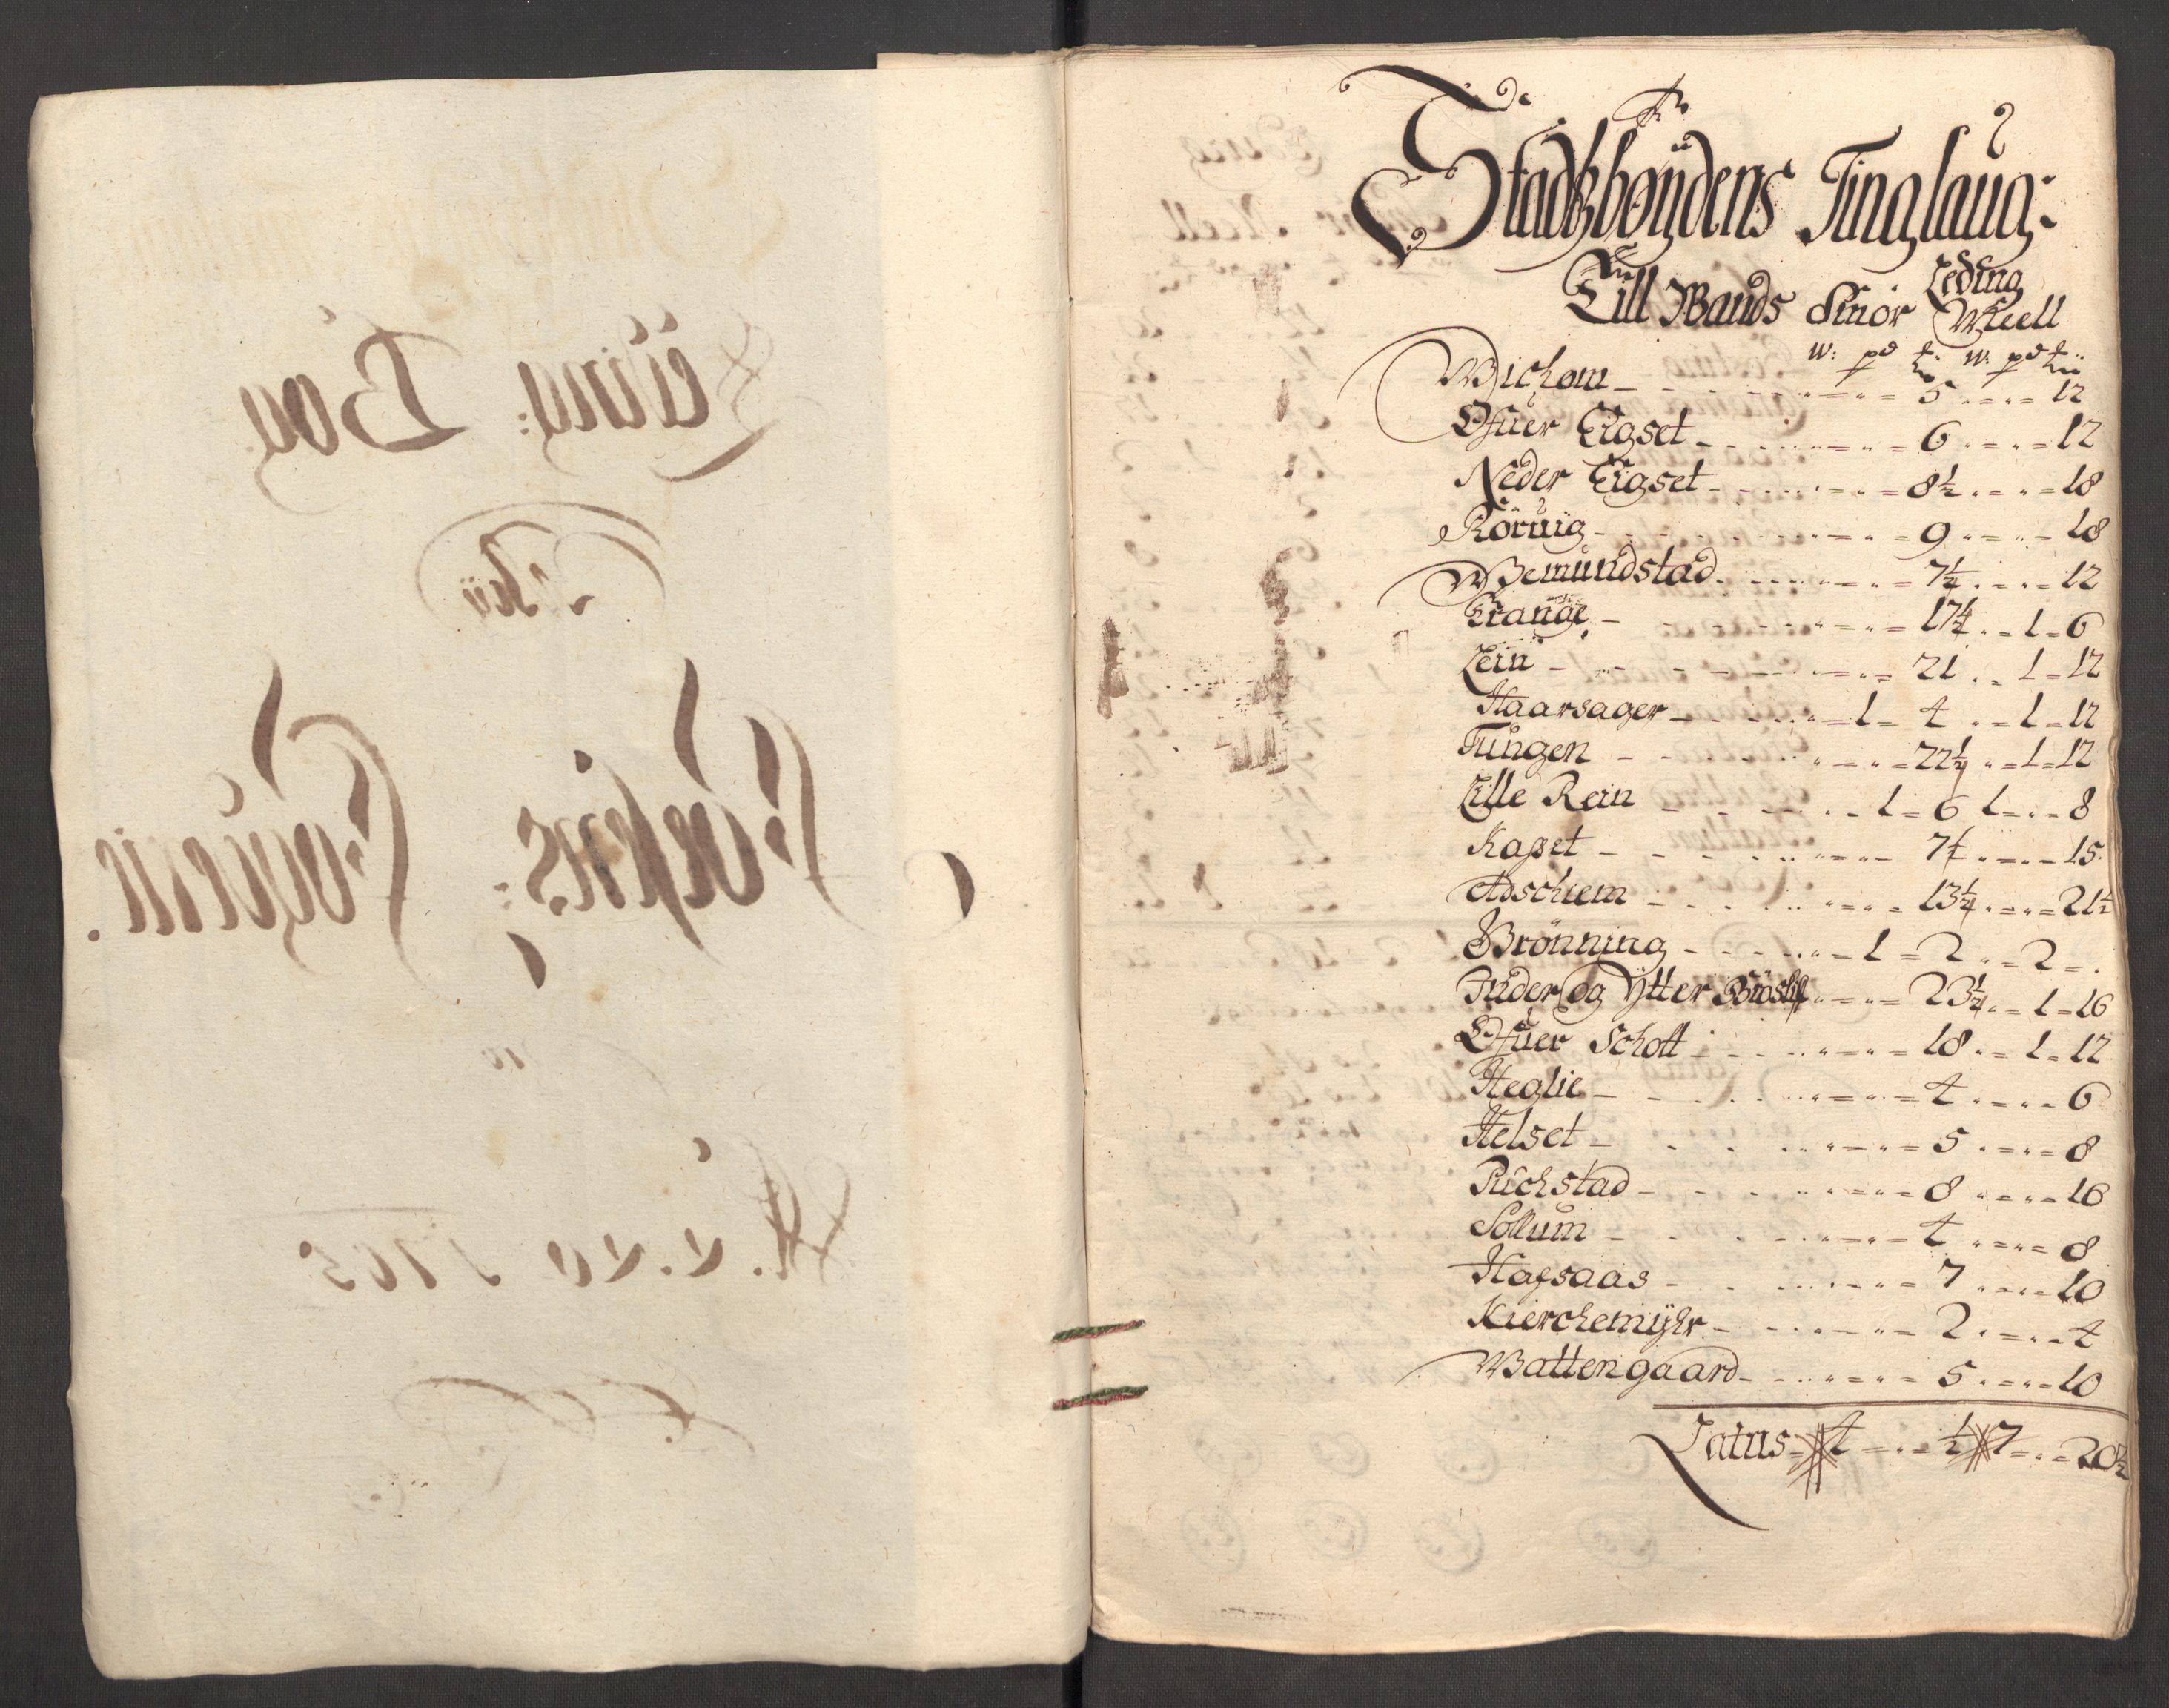 Leding: Bog
Fosens: Fogderie.
A.. 1705
Stadtzbøÿdens Tinglaug:
Leding
Till Wands Smör Meell
w: pd t: w: pd t:
Wichom - - - 5 - - 12
Ofuer Eigset - - - 6 - - 12
Neder Eigset - - - 8½ - - 18
Rörvüg - - - 9 - - 18
Wemundstad - - - 7½ - - 12
Erange - - - 17½ - 1 - 6
Lein - - - 21 - 1 - 12
Haarsager - - 1 - 4 - 1 - 12
Tungen - - - 22½ - 1 - 12
Lille Rein - - 1 - 6 1 - - 8
Kaset - - - 7½ - - 15
Adschiem - - - 13½ - - 21½
Brönning - - 1 - 2 - 2 - -
Inder og Ÿtter - - - 23½ - 1 - 16
Ofuer Schott - - - 18 - 1 - 12
Heglie - - - 4 - - 6
Helset - - - 5 - - 8
Puchstad - - - 8 - - 16
Sollum - - - 4 - - 8
Hafsaas - - - 7 - - 10
Kierchemÿhr - - - 2 - - 4
Wattengaard - - - 5 - - 10
Latus - 4 - - ½ 7 - - 20½